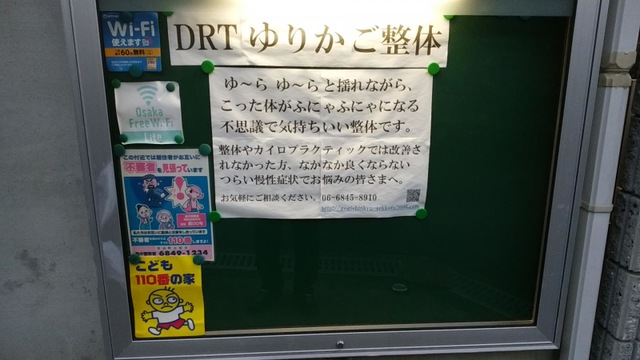 Wi-Fi
使えます
60
無料
DRT ゆりかご整体
Osaka
Free Wi-Fi
Lite
ゆ〜ら ゆ〜らと揺れながら、
こった体がふにゃふにゃになる
不思議で気持ちいい整体です。
整体やカイロプラクティックでは改善さ
れなかった方、なかなか良くならない
つらい慢性症状でお悩みの皆さまへ。
お気軽にご相談ください。06-6845-8910
この付近では居住者がお互いに
不審者を見張っています
110番しますよ!
6849-1234
こども
110番の家